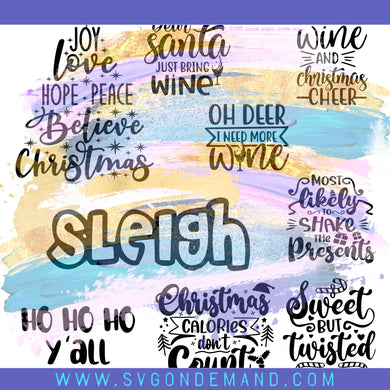 JOY
Love
HOPE · PEACE
Believe
Christmas
Dear
santa
JUST BRING
WINE
WINE
AND
christmas
CHEER
OH DEER
I NEED MORE
WINE
MOST
likely
TO
SHAKE
THE
Presents
Sleigh
HO HO HO
y'all
Christmas
CALORIES
don't
Count
Sweet
BUT
twisted
WWW.SVGONDEMAND.COM